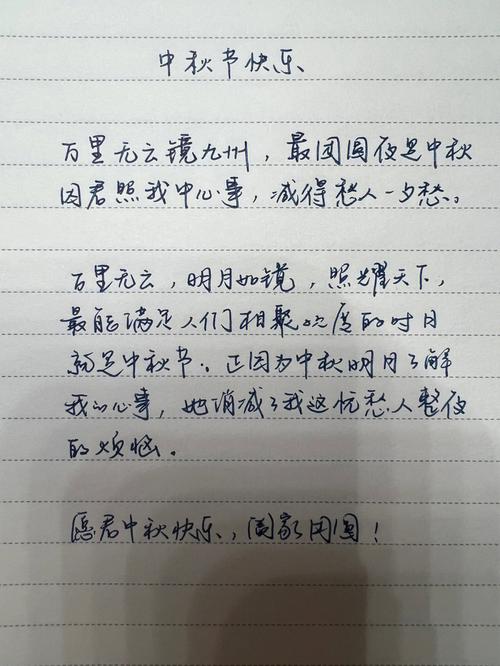 中秋节快乐
万里无云镜九州，最团圆夜是中秋
因君照我中心事，减得愁人一夕愁。
万里无云，明月如镜，照耀天下，
最能满足人们相聚欢度的时日
就是中秋节。正因为中秋明月了解
我的心事，她消减了我这忧愁人整夜
的烦恼。
愿君中秋快乐，阖家团圆！